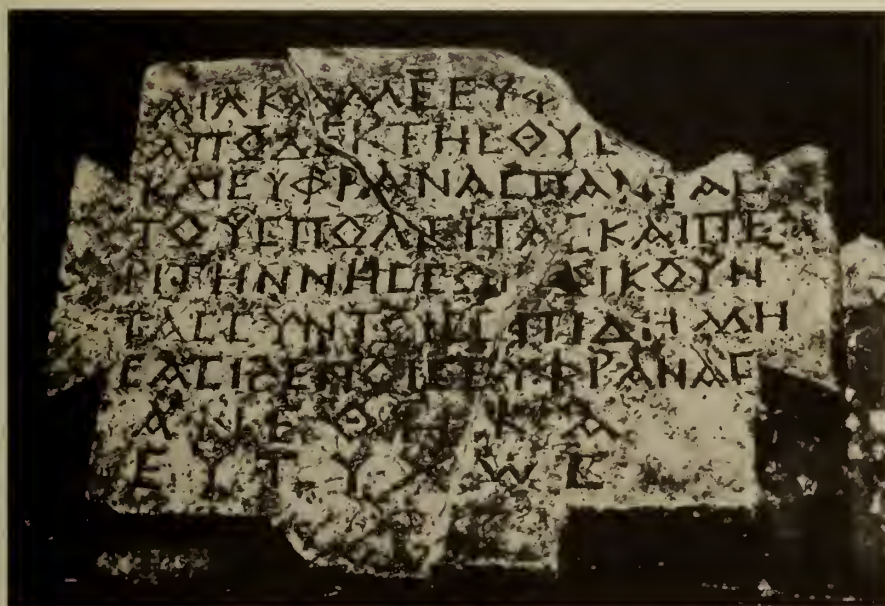 ΑΠΟΔΕΚΤΗϹΘΥ
ΚΑΙΕΥΦΡΑΝΑϹΠΑΝΤΑϹ
ΤΟΥϹΠΟΛΕΙΤΑϹΚΑΙΠΕ
ΡΙΤΗΝΝΗϹ ΙΚΟΥΝ
ΤΑϹϹΥΝΤΟΙϹΕΠΙΔΗΜΗ
ϹΑϹΙΞΕΝΟΙϹΕΥΦΡΑΝΑϹ
ΑΝΕΘΗΚΑ
ΕΥΤΥΧωϹ